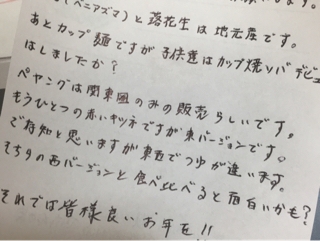 (ベニアズマ)と落花生は地元産です。
あとカップ麺ですが子供達はカップ焼ソバデビュ
はしましたか?
ペヤングは関東風のみの販売らしいです。
もうひとつの赤いキツネですが東バージョンです。
ご存知と思いますが東西でつゆが違います。
そちらの西バージョンと食べ比べると面白いかも?
それでは皆様良いお年を!!